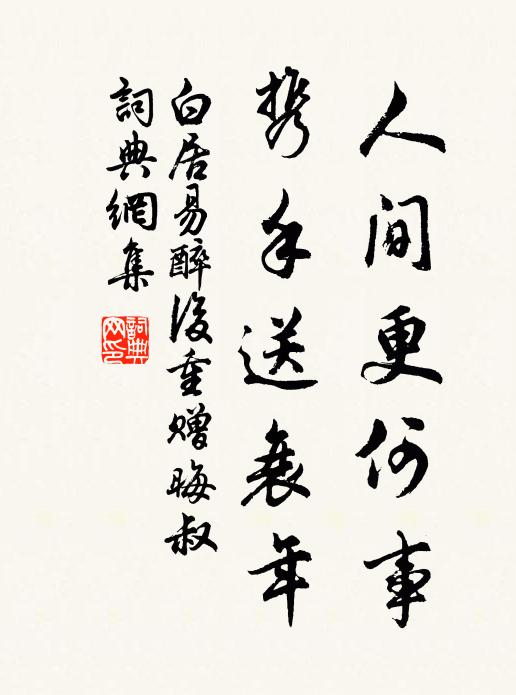 人間更何事
携手送衰年
白居易醉後重贈晦叔
詞典網集
詞典网印